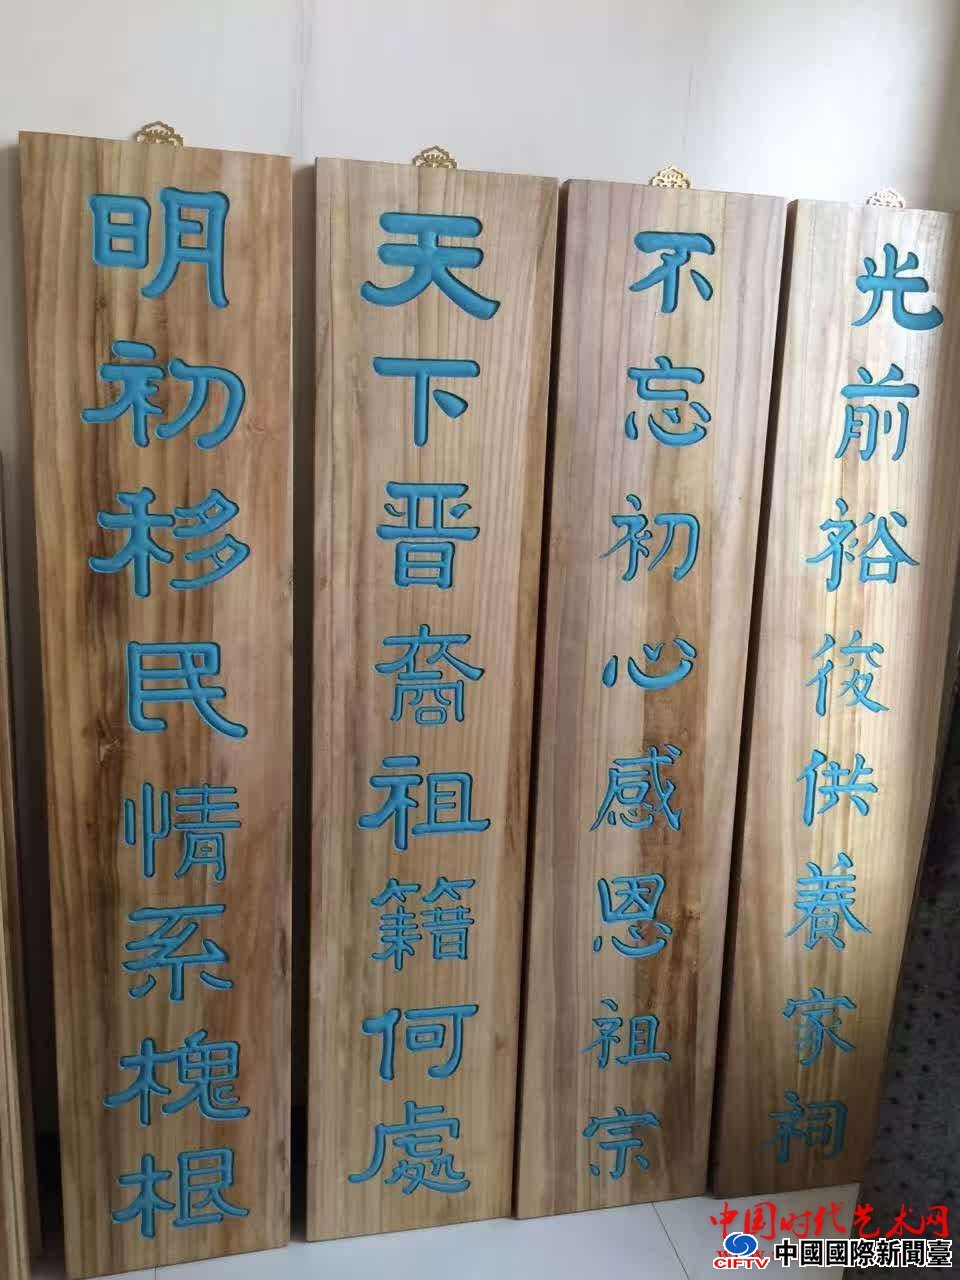 明初移民情系槐根
天下晋裔祖籍何處
不忘初心感恩祖宗
光前裕後供養家祠
中国时代艺术网
CIFTV 中國國際新聞臺